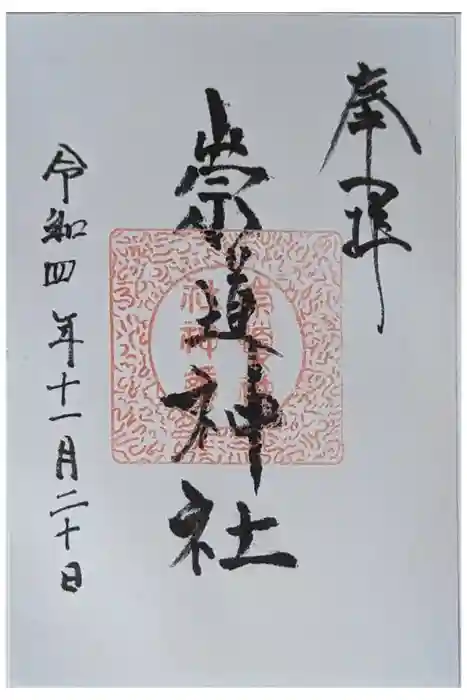 奉拝
崇道神社
令和四年十一月二十日